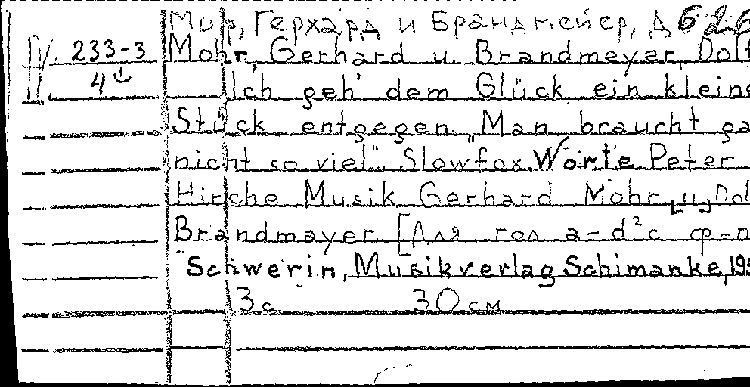 Мир, Герхард и Брандмейер, Д 626
233-3 Mohr, Gerhard u. Brandmeyer, Dol
4° Ich geh' dem Glück ein klein
Stück entgegen „Man braucht ga
nicht so viel". Slowfox. Worte Peter
Hirche Musik Gerhard Mohr [u] Dol
Brandmayer [Для гол a-d²c ф-п
Schwerin, Musikverlag Schimanke, 195
3с 30 см